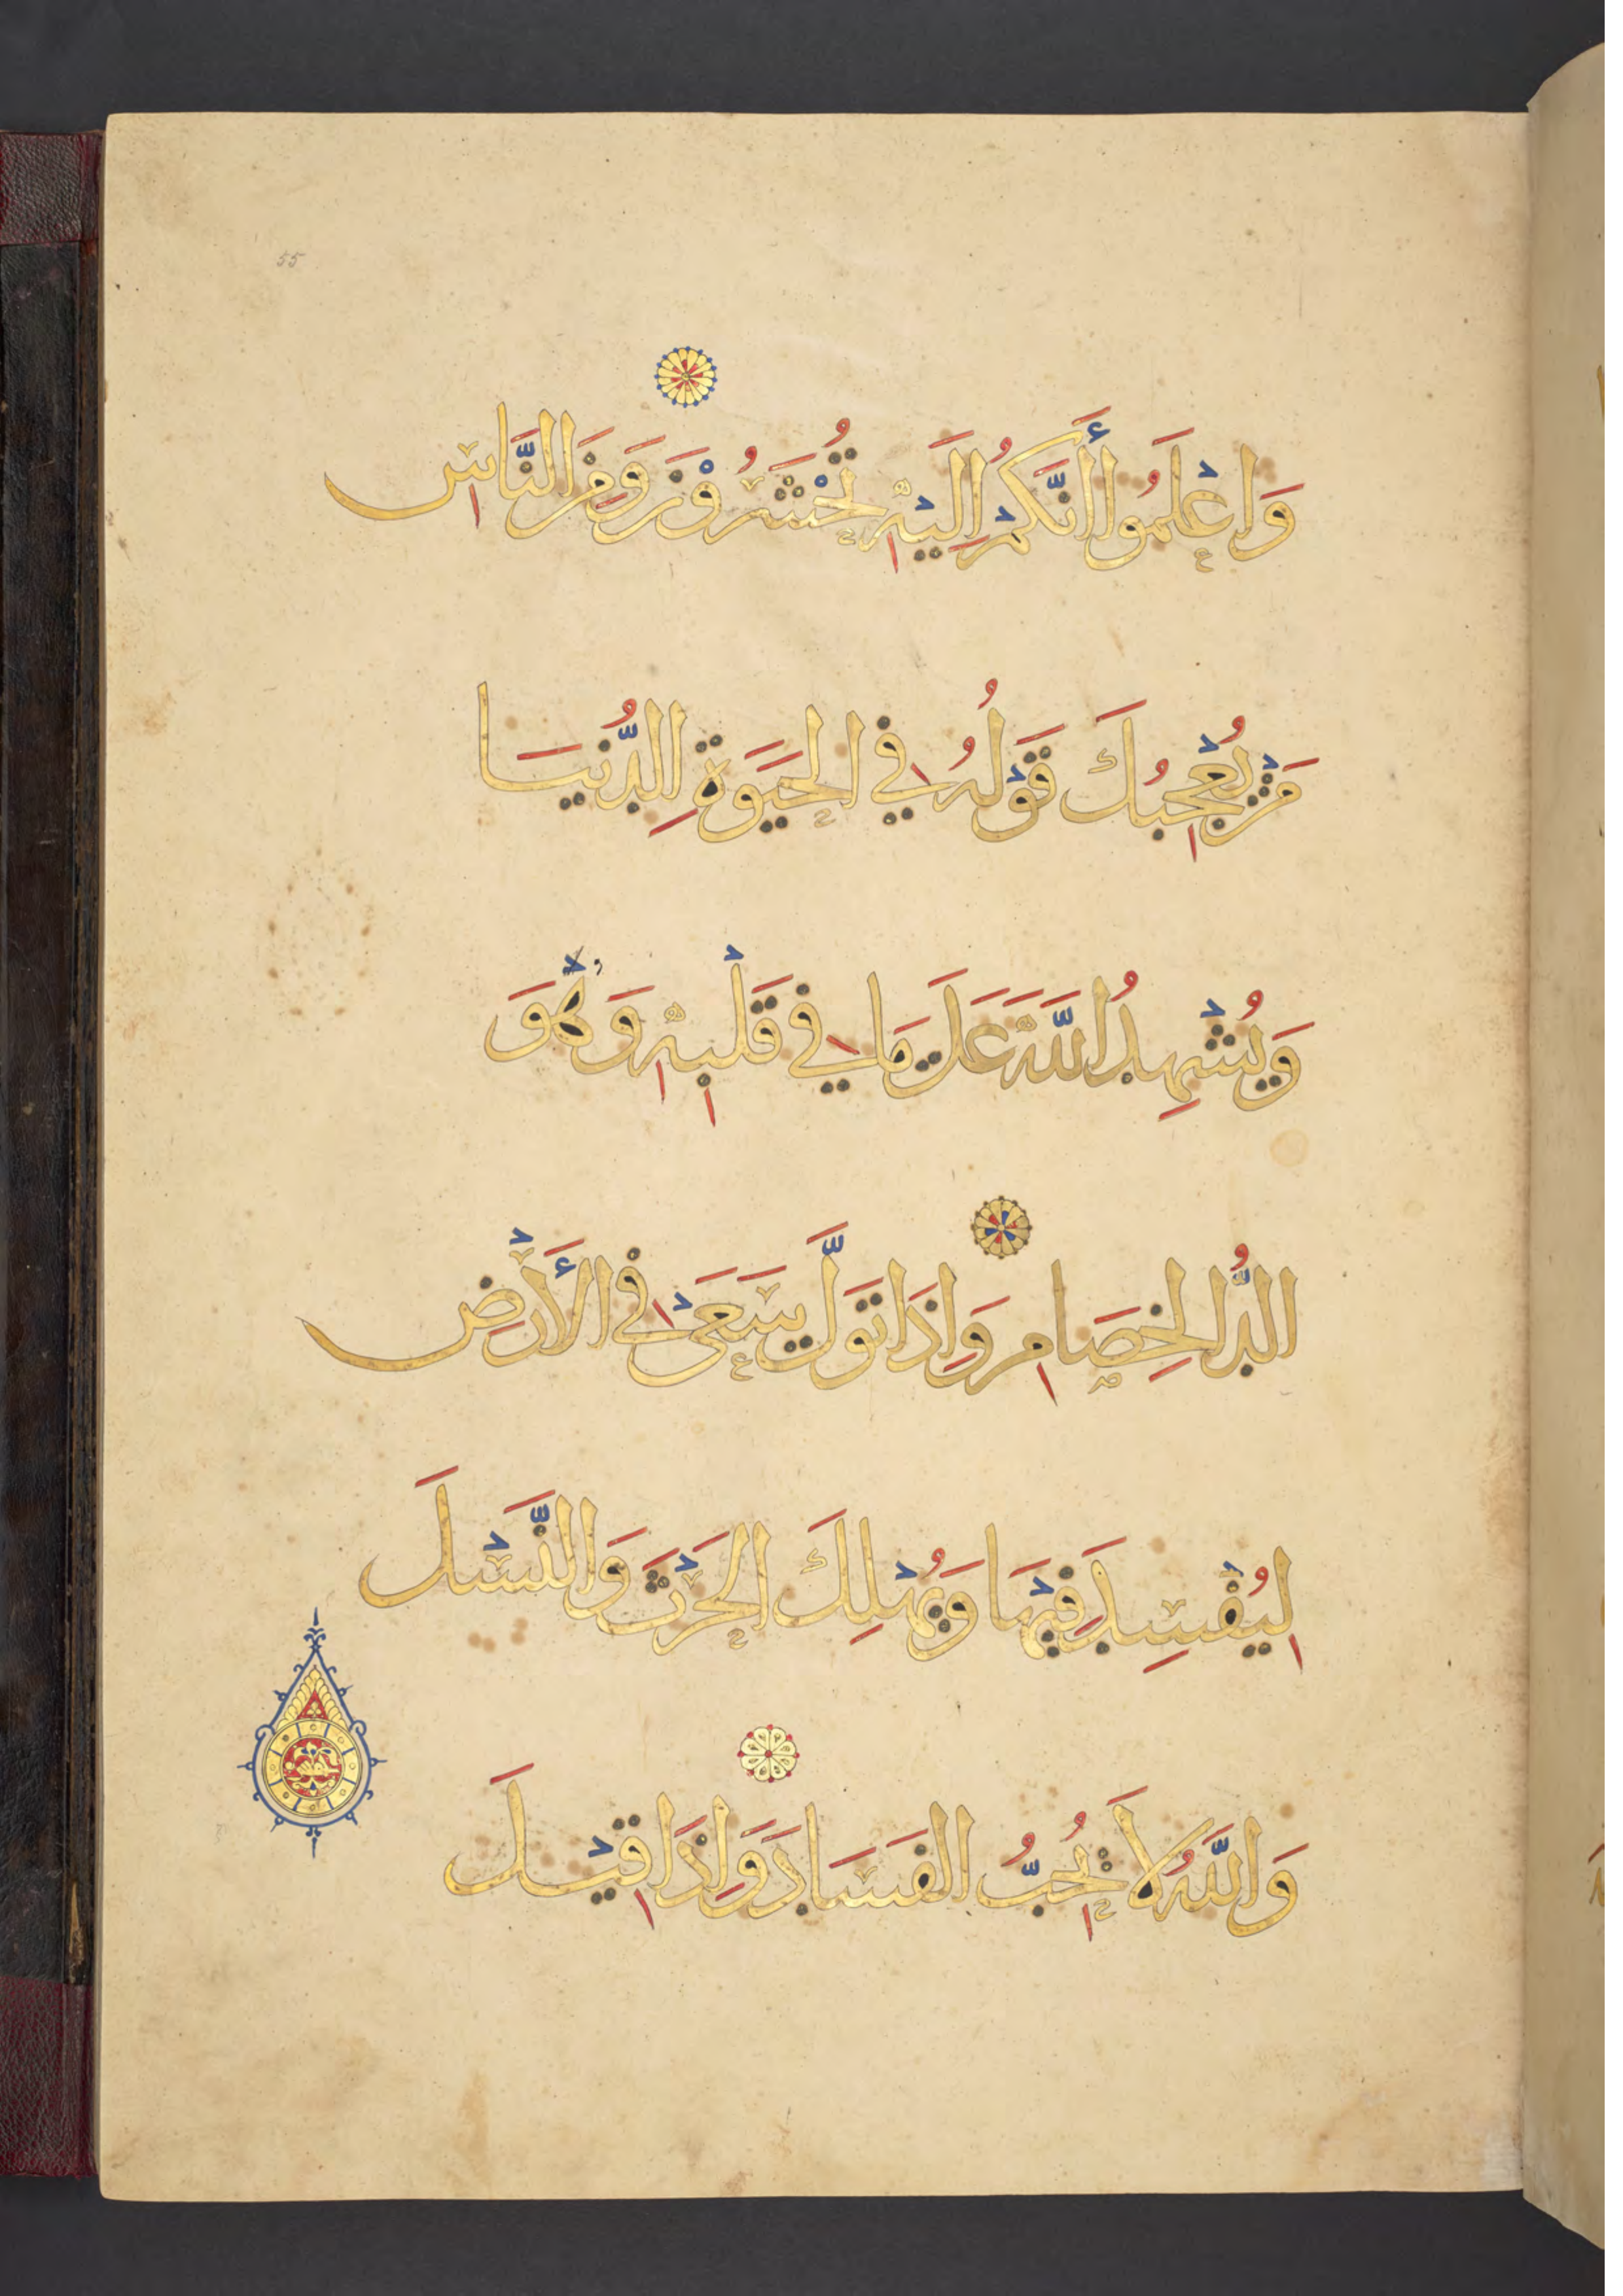 55
وَاعْلَمُوا أَنَّكُمْ إِلَيْهِ تُحْشَرُوْنَ وَمِنَ النَّاسِ
مَنْ يُعْجِبُكَ قَوْلُهُ فِي الحَيَوةِ الدُّنيَا
وَيُشْهِدُ اللَّهَ عَلَى مَا فِي قَلْبِهِ وَهْوَ
الدُّ الخِصَامِ وَاِذَا تَوَلَّى سَعَىْ فِي الأَرْضِ
لِيُفْسِدَ فِيْهَا وَيُهْلِكَ الحَرْثَ وَالنَّسْلَ
وَاللَّهُ لَا يُحِبُّ الفَسَادَ وَاِذَا قِيْلَ